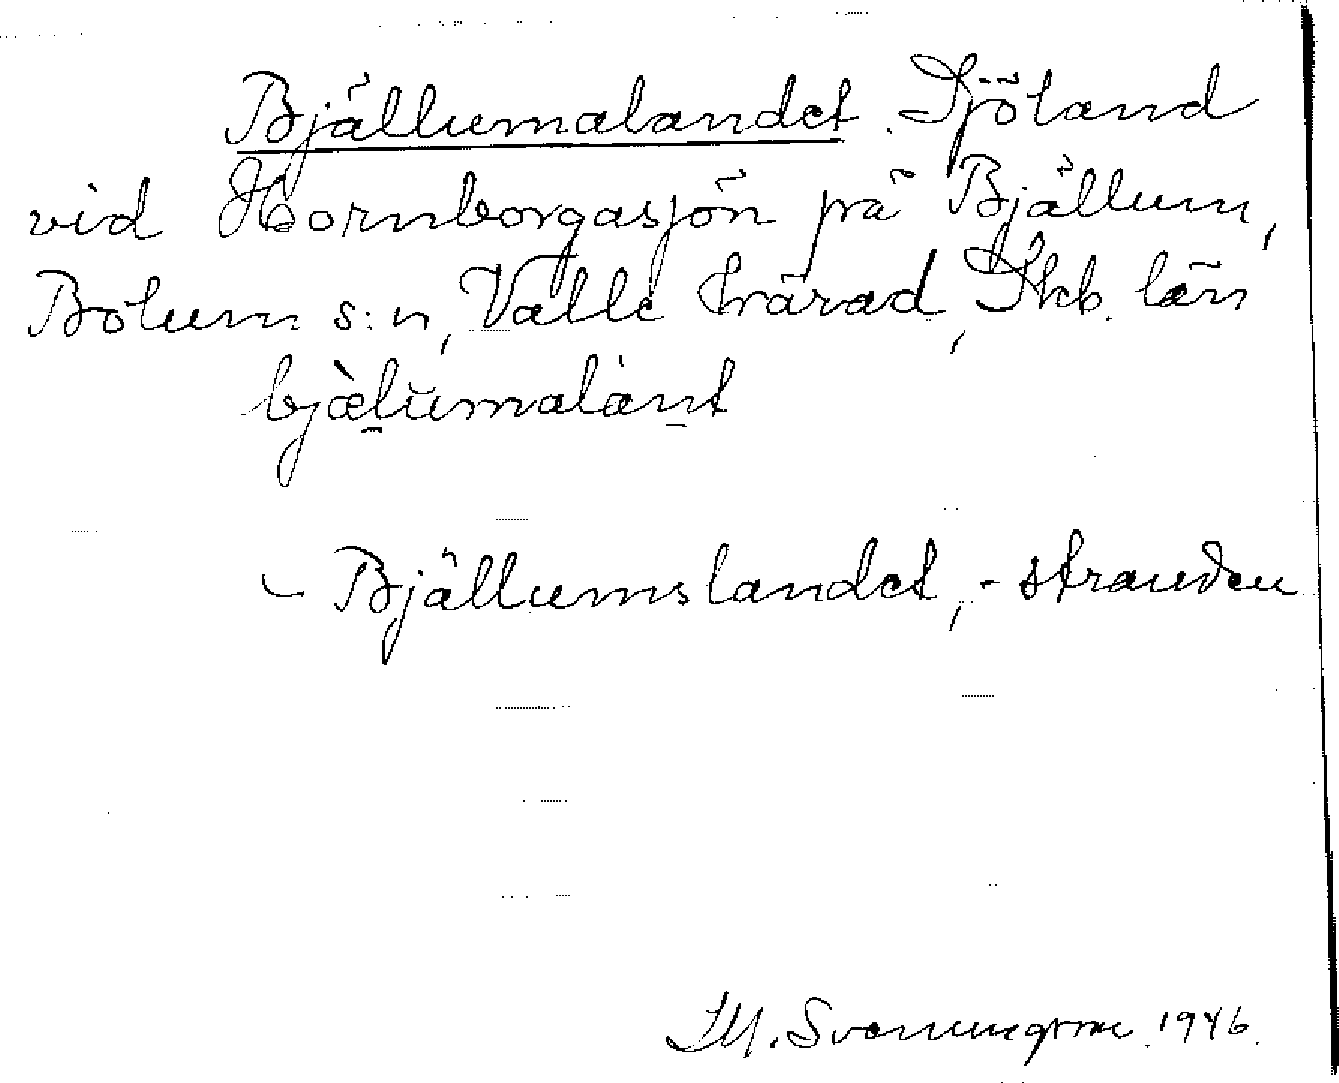 Bjällumalandet. Sjöland
vid Hornborgasjön på Bjällum,
Bolum s:n, Valle härad, Skb. län
bjæ̀lŭmalánt
- Bjällumslandet, - stranden
Svenungsson 1946.